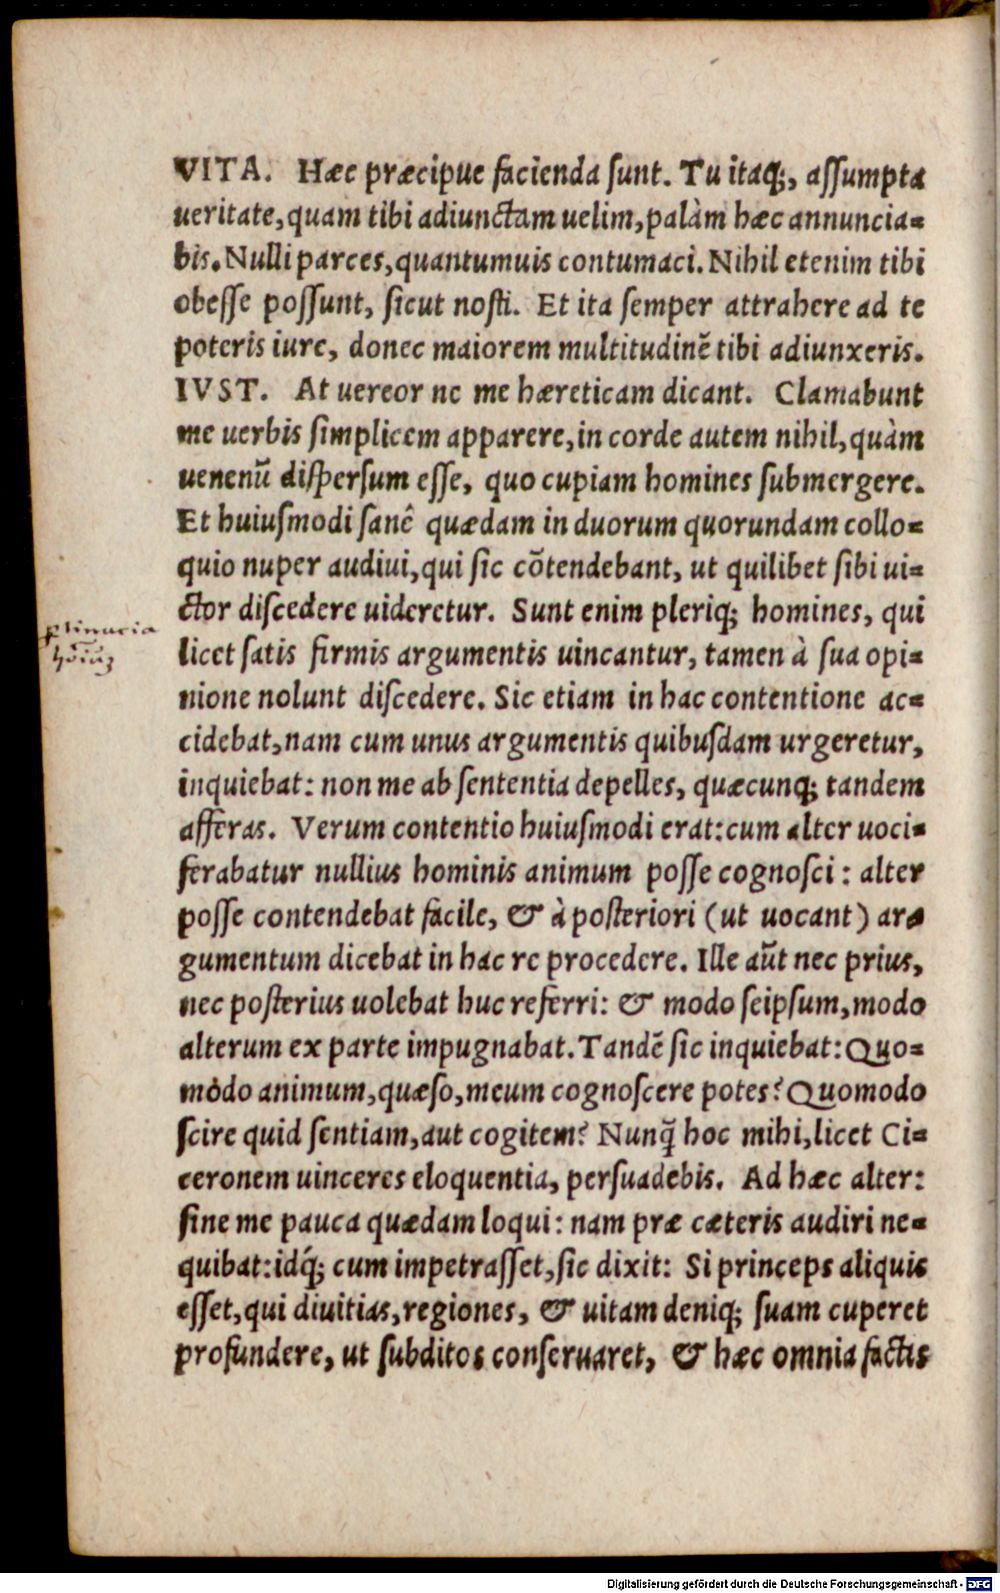 VITA. Hæc præcipue facienda sunt. Tu itaq;, assumpta
ueritate, quam tibi adiunctam uelim, palàm hæc annuncia=
bis. Nulli parces, quantumuis contumaci. Nihil etenim tibi
obesse possunt, sicut nosti. Et ita semper attrahere ad te
poteris iure, donec maiorem multitudinē tibi adiunxeris.
IVST. At uereor ne me hæreticam dicant. Clamabunt
me uerbis simplicem apparere, in corde autem nihil, quàm
uenenū dispersum esse, quo cupiam homines submergere.
Et huiusmodi sanè quædam in duorum quorundam collo=
quio nuper audiui, qui sic cōtendebant, ut quilibet sibi ui=
ctor discedere uideretur. Sunt enim pleriq; homines, qui
ptinacia
hōiuʒ
licet satis firmis argumentis uincantur, tamen à sua opi=
nione nolunt discedere. Sic etiam in hac contentione ac=
cidebat, nam cum unus argumentis quibusdam urgeretur,
inquiebat: non me ab sententia depelles, quæcunq; tandem
afferas. Verum contentio huiusmodi erat: cum alter uoci=
ferabatur nullius hominis animum posse cognosci: alter
posse contendebat facile, & à posteriori (ut uocant) ar=
gumentum dicebat in hac re procedere. Ille aūt nec prius,
nec posterius uolebat huc referri: & modo seipsum, modo
alterum ex parte impugnabat. Tandē sic inquiebat: Quo=
mòdo animum, quæso, meum cognoscere potes? Quomodo
scire quid sentiam, aut cogitem? Nunq̃ hoc mihi, licet Ci=
ceronem uinceres eloquentia, persuadebis. Ad hæc alter:
sine me pauca quædam loqui: nam præ cæteris audiri ne=
quibat: idq́; cum impetrasset, sic dixit: Si princeps aliquis
esset, qui diuitias, regiones, & uitam deniq; suam cuperet
profundere, ut subditos conseruaret, & hæc omnia factis
Digitalisierung gefördert durch die Deutsche Forschungsgemeinschaft - DFG